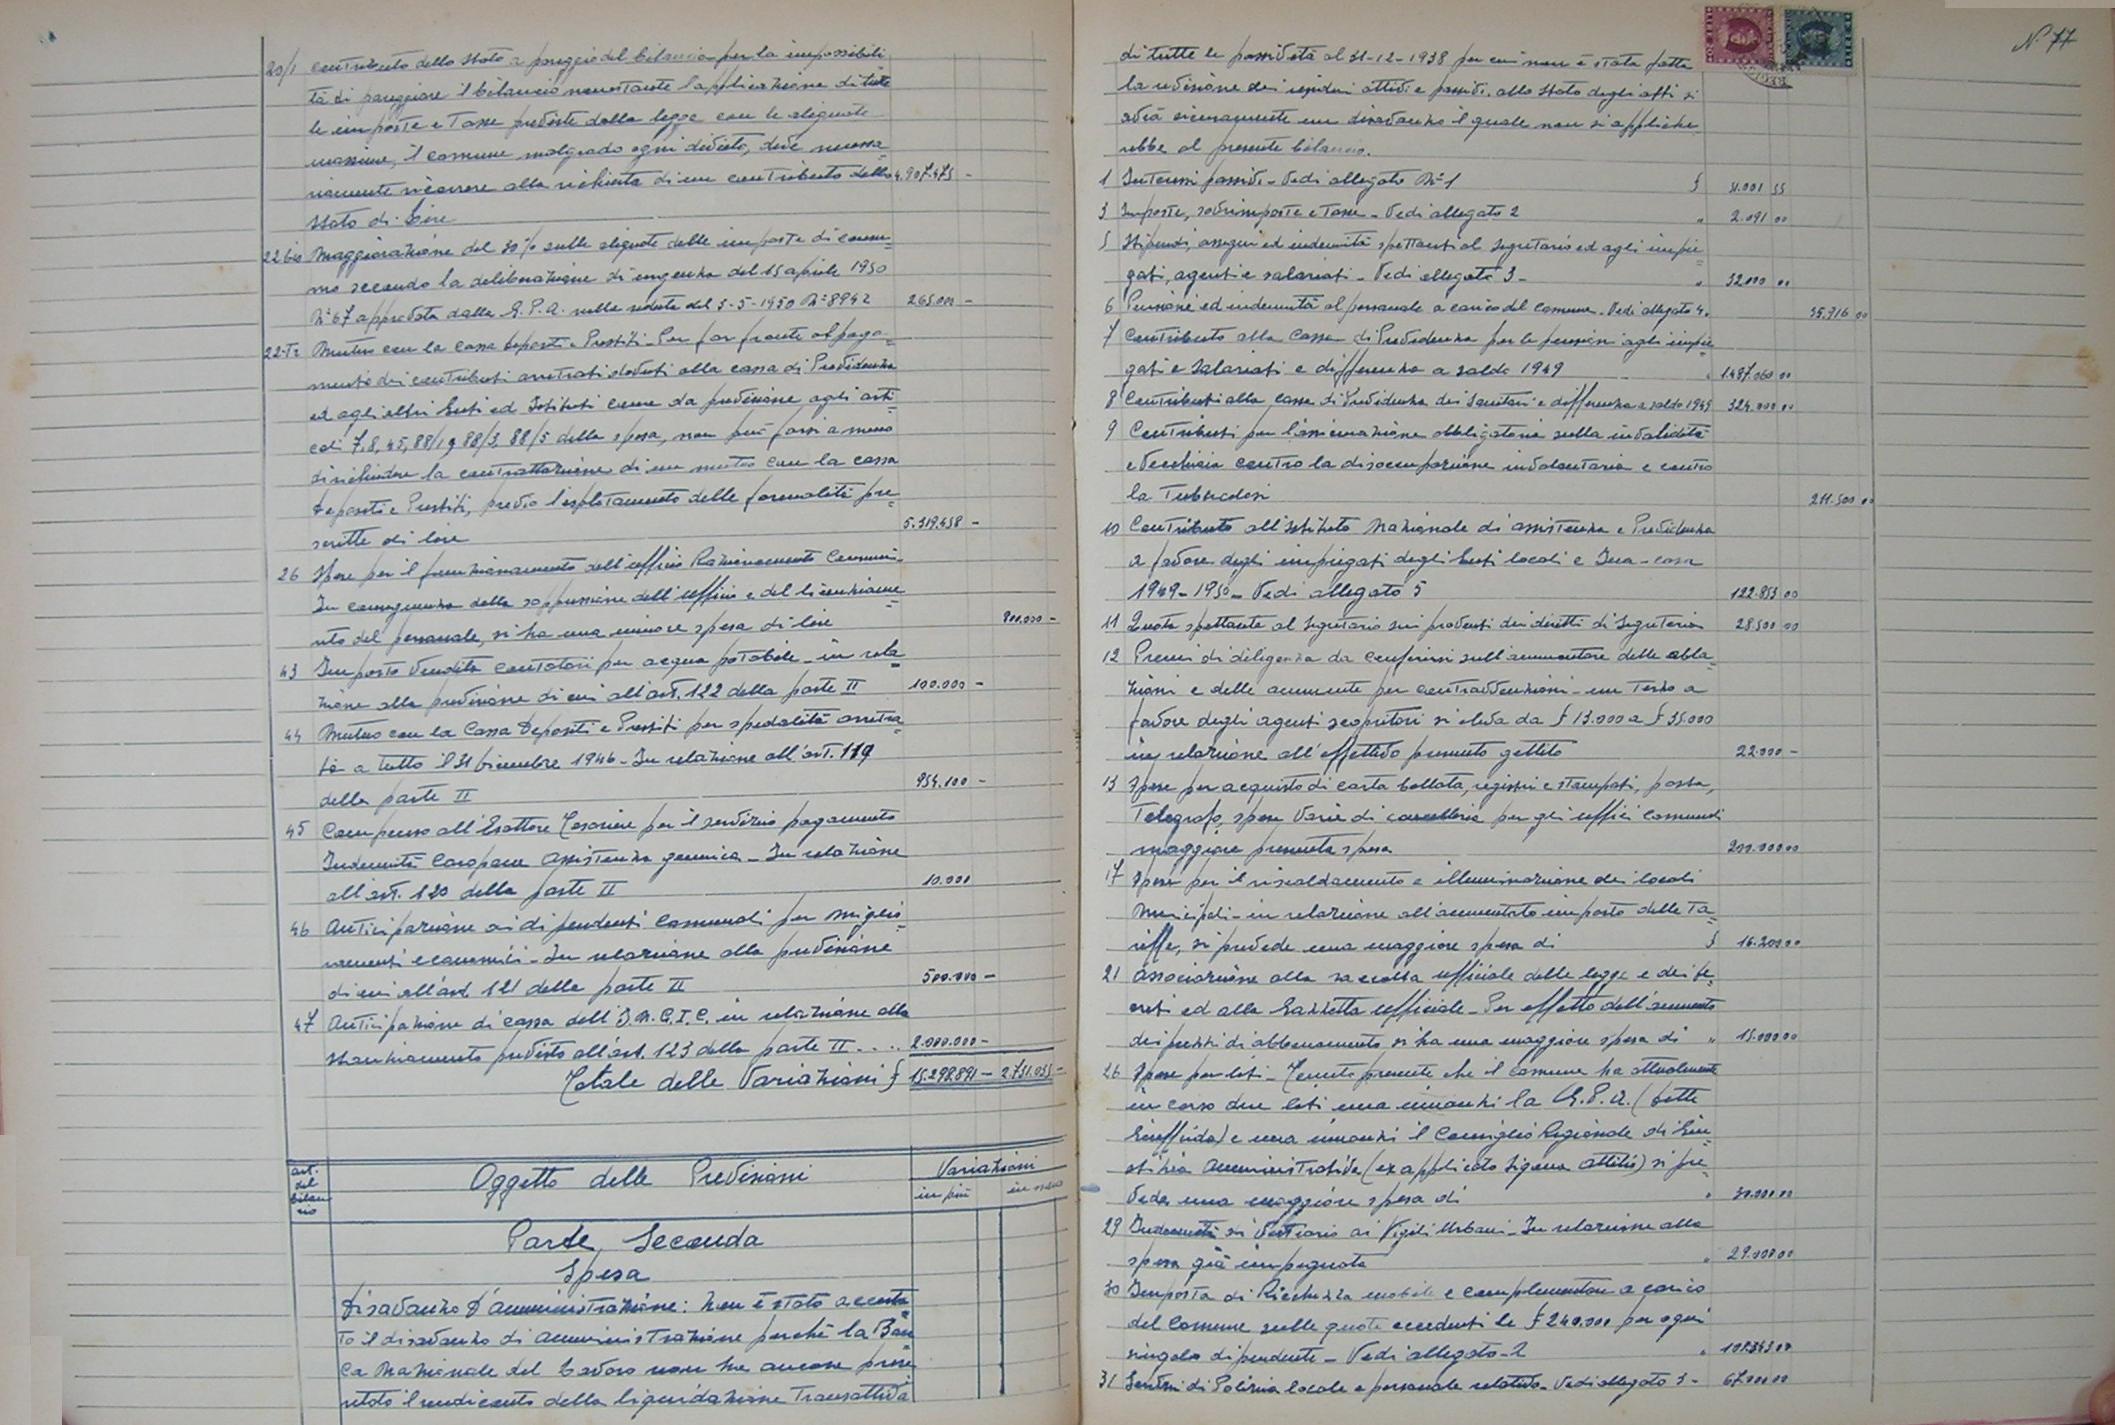 20/1 contributo dello Stato a pareggio del bilancio per la impossibili
tà di pareggiare il bilancio nonostante l'applicazione di tutte
le imposte e tasse previste dalla legge con le aliquote
massime, il comune malgrado ogni divieto, deve necessa=
riamente ricorrere alla richiesta di un contributo dello 4.907.473 -
Stato di lire
22 bis Maggiorazione del 30% sulle aliquote delle imposte di consu=
mo secondo la deliberazione di urgenza del 15 aprile 1950
N° 67 approvata dalla G.P.A. nella seduta del 5-5-1950 N° 8942 265.000 -
22-Tr Mutuo con la Cassa Depositi e Prestiti - Per far fronte al paga=
mento dei contributi arretrati dovuti alla cassa di Previdenza
ed agli altri Enti ed Istituti come da previsione agli arti=
coli 7, 8, 45, 88/19 88/3, 88/5 della spesa, non può farsi a meno
di richiedere la contrattazione di un mutuo con la cassa
Depositi e Prestiti, previo l'espletamento delle formalità pre=
scritte di lire 5.319.458 -
26 Spese per il funzionamento dell'ufficio Razionamento Consumi -
In conseguenza della soppressione dell'Ufficio e del licenziame=
nto del personale, si ha una minore spesa di lire 900.000 -
43 Importo vendita contatori per acqua potabile - in rela=
zione alla previsione di cui all'art. 122 della parte II 100.000 -
44 Mutuo con la Cassa Depositi e Prestiti per spedalità arretra=
te a tutto il 31 Dicembre 1946 - In relazione all'art. 119
della parte II 954.100 -
45 Compenso all'Esattore Tesoriere per il servizio pagamento
Indennità Caropane Assistenza generica - In relazione
all'art. 120 della parte II 10.000
46 Anticipazione ai dipendenti comunali per miglio=
ramenti economici - In relazione alla previsione
di cui all'art 121 della parte II 500.000 -
47 Anticipazione di cassa dell'I.N.G.I.C. in relazione allo
stanziamento previsto all'art. 123 della parte II .... 2.000.000 -
Totale delle Variazioni £ 15.298.891 - 2.751.055 -
art. del bilan cio Oggetto delle Previsioni Variazioni
in più in meno
Parte Seconda
Spesa
Disavanzo d'amministrazione: Non è stato accerta
to il disavanzo di amministrazione perchè la Ban=
ca Nazionale del Lavoro non ha ancora prese
ntato il rendiconto della liquidazione transattiva
N. 77
di tutte le passività al 31-12-1938 per cui non è stata fatta
la revisione dei residui attivi e passivi. Allo stato degli atti si
avrà sicuramente un disavanzo il quale non si appliche=
rebbe al presente bilancio.
1 Interessi passivi - Vedi allegato N° 1 £ 31.001 55
3 Imposte, sovrimposte e tasse - Vedi allegato 2 " 2.091 00
5 Stipendi, assegni ed indennità spettanti al Segretario ed agli impie=
gati, agenti e salariati - Vedi allegato 3 - " 32.000 00
6 Pensioni ed indennità al personale a carico del comune - Vedi allegato 4. 35.916 00
7 Contributo alla Cassa di Previdenza per le pensioni agli impie=
gati e salariati e differenza a saldo 1949 " 1.487.060 00
8 Contributi alla cassa di Previdenza dei Sanitari e differenza a saldo 1949 324.000 00
9 Contributi per l'assicurazione obbligatoria sulla invalidità
e vecchiaia contro la disoccupazione involontaria e contro
la Tubercolosi 211.500 00
10 Contributo all'Istituto Nazionale di assistenza e Previdenza
a favore degli impiegati degli Enti locali e Ina-casa
1949-1950 - Vedi allegato 5 122.853 00
11 Quota spettante al Segretario sui proventi dei diritti di Segreteria 28.500 00
12 Premi di diligenza da conferirsi sull'ammontare delle obla=
zioni e delle ammende per contravvenzioni - un terzo a
favore degli agenti scopritori si eleva da £ 13.000 a £ 35.000
in relazione all'effettivo presunto gettito 22.000 -
13 Spese per acquisto di carta bollata, registri e stampati, posta,
Telegrafo, spese varie di cancelleria per gli uffici Comunali
maggiore presunta spesa 200.000 00
17 Spese per il riscaldamento e illuminazione dei locali
Municipali - in relazione all'aumentato importo delle Ta=
riffe, si prevede una maggiore spesa di £ 16.200 00
21 Associazione alla raccolta ufficiale delle legge e dei de=
creti ed alla Gazzetta ufficiale - Per effetto dell'aumento
dei prezzi di abbonamento si ha una maggiore spesa di " 15.000 00
26 Spese per liti - Tenuto presente che il Comune ha attualmente
in corso due liti una innanzi la G.P.A. (Ditta
) e una innanzi il Consiglio Regionale di Giu=
stizia Amministrativa (ex applicato Signora ) si pre=
vede una maggiore spesa di " 30.000 00
29 Indennità di Vestiario ai Vigili Urbani - In relazione alla
spesa già impegnata " 29.000 00
30 Imposta di Ricchezza mobile e complementare a carico
del Comune sulle quote eccedenti le £ 240.000 per ogni
singolo dipendente - Vedi allegato - 2 " 108.343 00
31 Servizi di Polizia locale e personale relativo - Vedi allegato 3 - 67.000 00